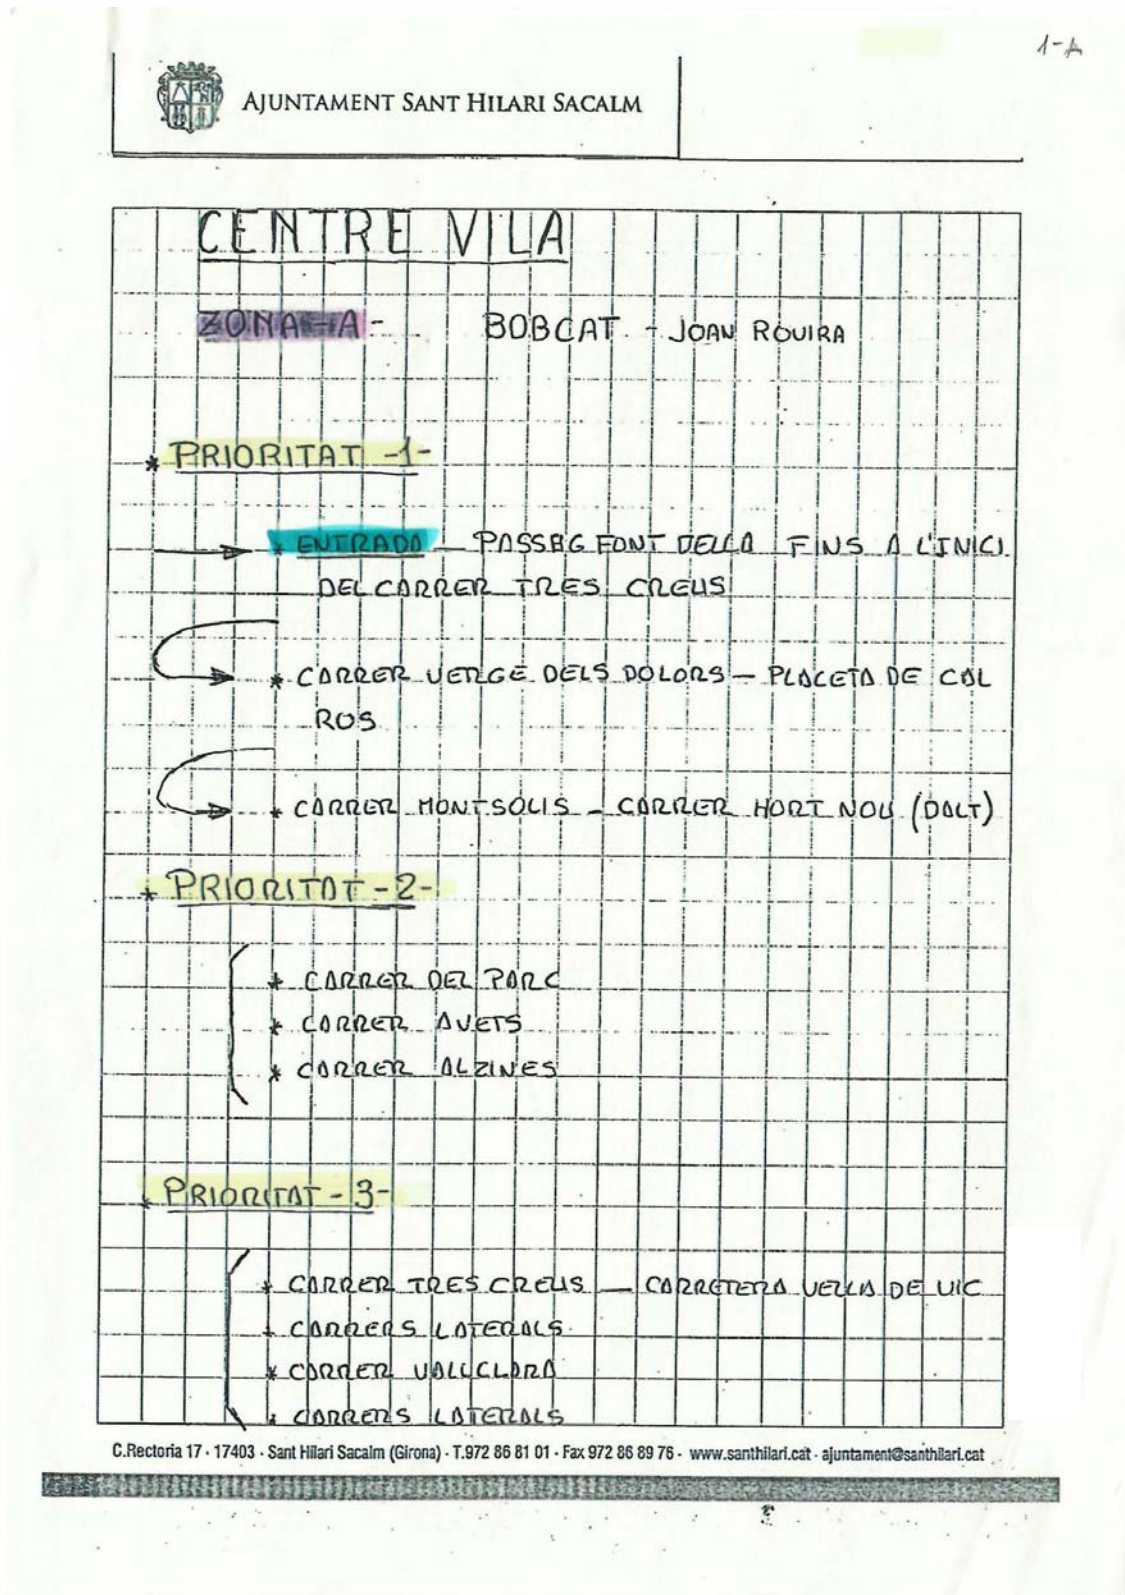 1-A
AJUNTAMENT SANT HILARI SACALM
CENTRE VILA
ZONA-A- BOBCAT - JOAN ROVIRA
* PRIORITAT -1-
* ENTRADA - PASSEG FONT VELLA FINS A L'INICI
DEL CARRER TRES CREUS
* CARRER VERGE DELS DOLORS - PLACETA DE CAL
ROS
* CARRER MONTSOLIS - CARRER HORT NOU (DALT)
* PRIORITAT -2-
* CARRER DEL PARC
* CARRER AVETS
* CARRER ALZINES
* PRIORITAT -3-
* CARRER TRES CREUS - CARRETERA VELLA DE VIC
* CARRERS LATERALS
* CARRER VALLCLARA
* CARRERS LATERALS
C.Rectoria 17 · 17403 · Sant Hilari Sacalm (Girona) · T.972 86 81 01 · Fax 972 86 89 76 · www.santhilari.cat · ajuntament@santhilari.cat